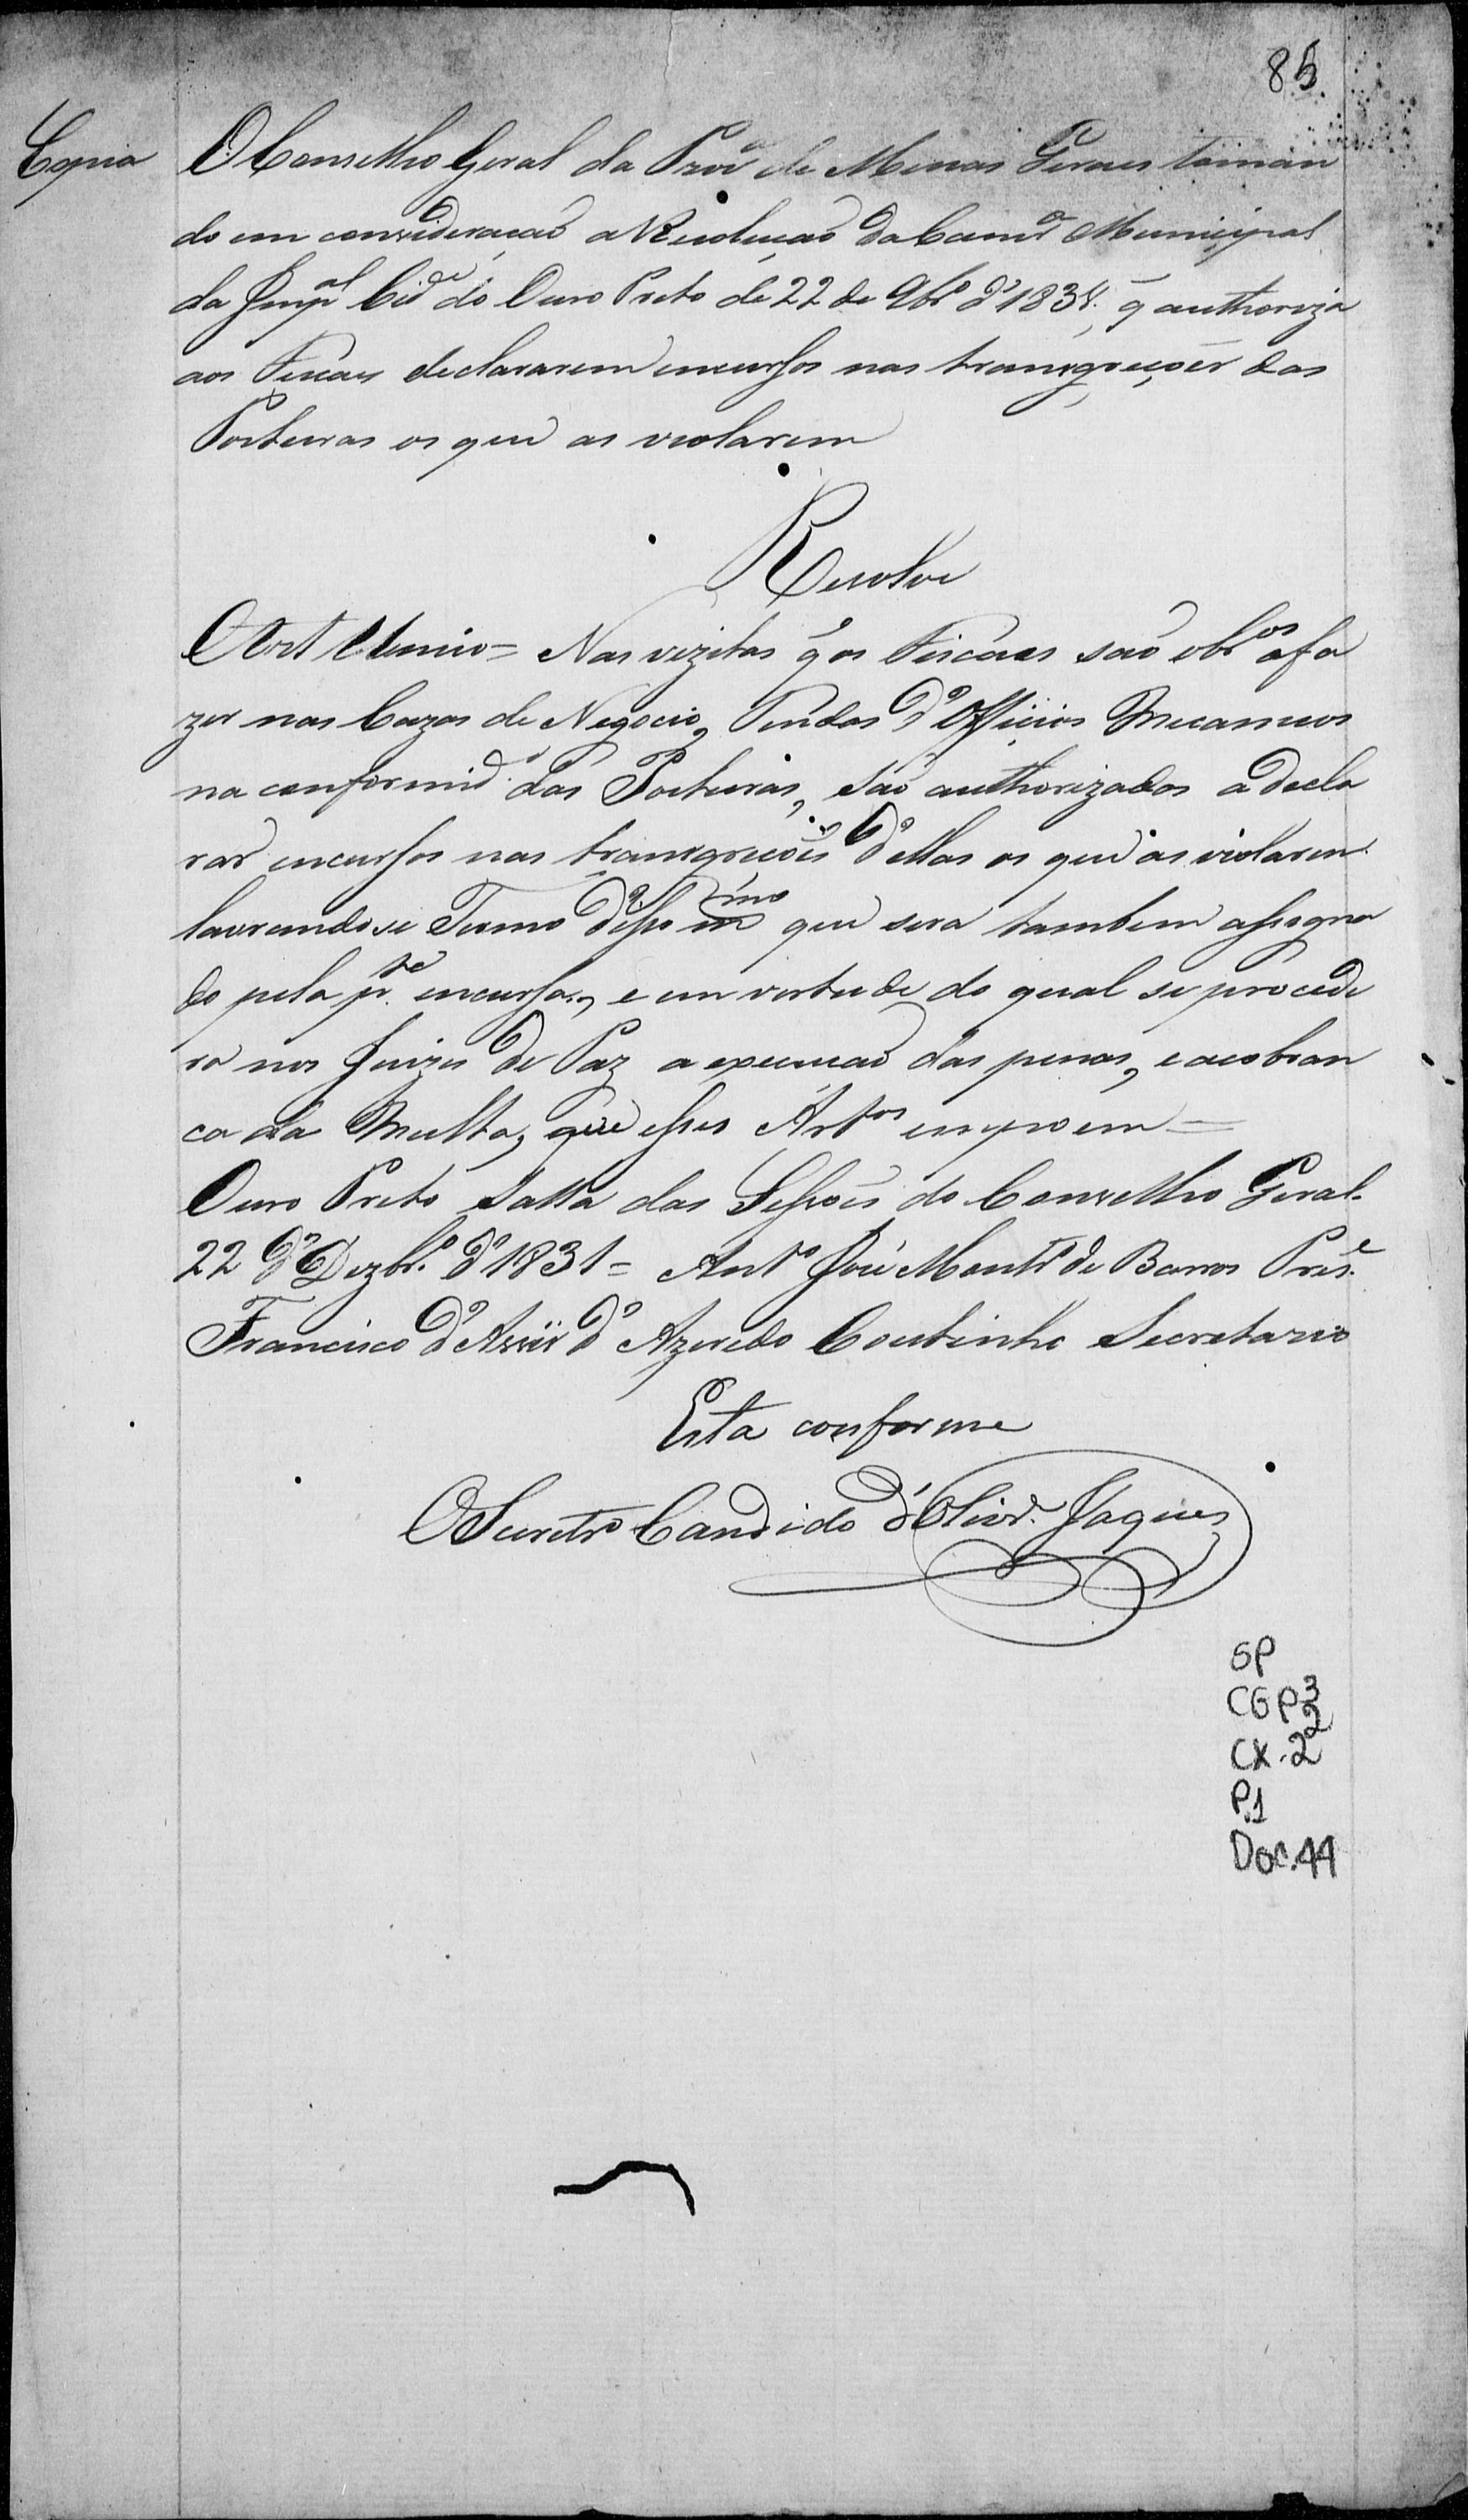 85
Copia
O Conselho Geral da Prov.ª de Minas Geraes toman
do em consideração a Rezolução da Camr.ª Municipal
da Imp.al Cid.e do Ouro Preto de 22 de 9br.º d' 1831, q̃ authoriza
aos Fiscaes declararem incursos nas transgreções das
Posturas os que as violarem
Resolve
Art Unico = Nas vizitas q̃ os Fiscáes são obr.os a fa
zer nas Cazas de Negocio, Tendas d' Officios Mecanicos
na conformid.e das Posturas, são authorizados a decla
rar incursos nas transgreções d'ellas os que as violarem
lavrando se Termo d'isso mmo que sera tambem assigna
do pela p.te incursa, e em virtude do qual se procede
rá nos Juizes de Paz a execução das penas, e a cobran
ca da Multa, que esses Art.os impoem =
Ouro Preto Salla das Sessões do Conselho Geral
22 d' Dezbr.º d' 1831 = Ant.º José Montr.º de Barros Pres.e
Francisco d' Assis d' Azeredo Coutinho Secretario
Esta conforme
O Secretr.º Candido d' Olivr.ª Jaques
SP
CGP3
CX.22
P.1
Doc.44